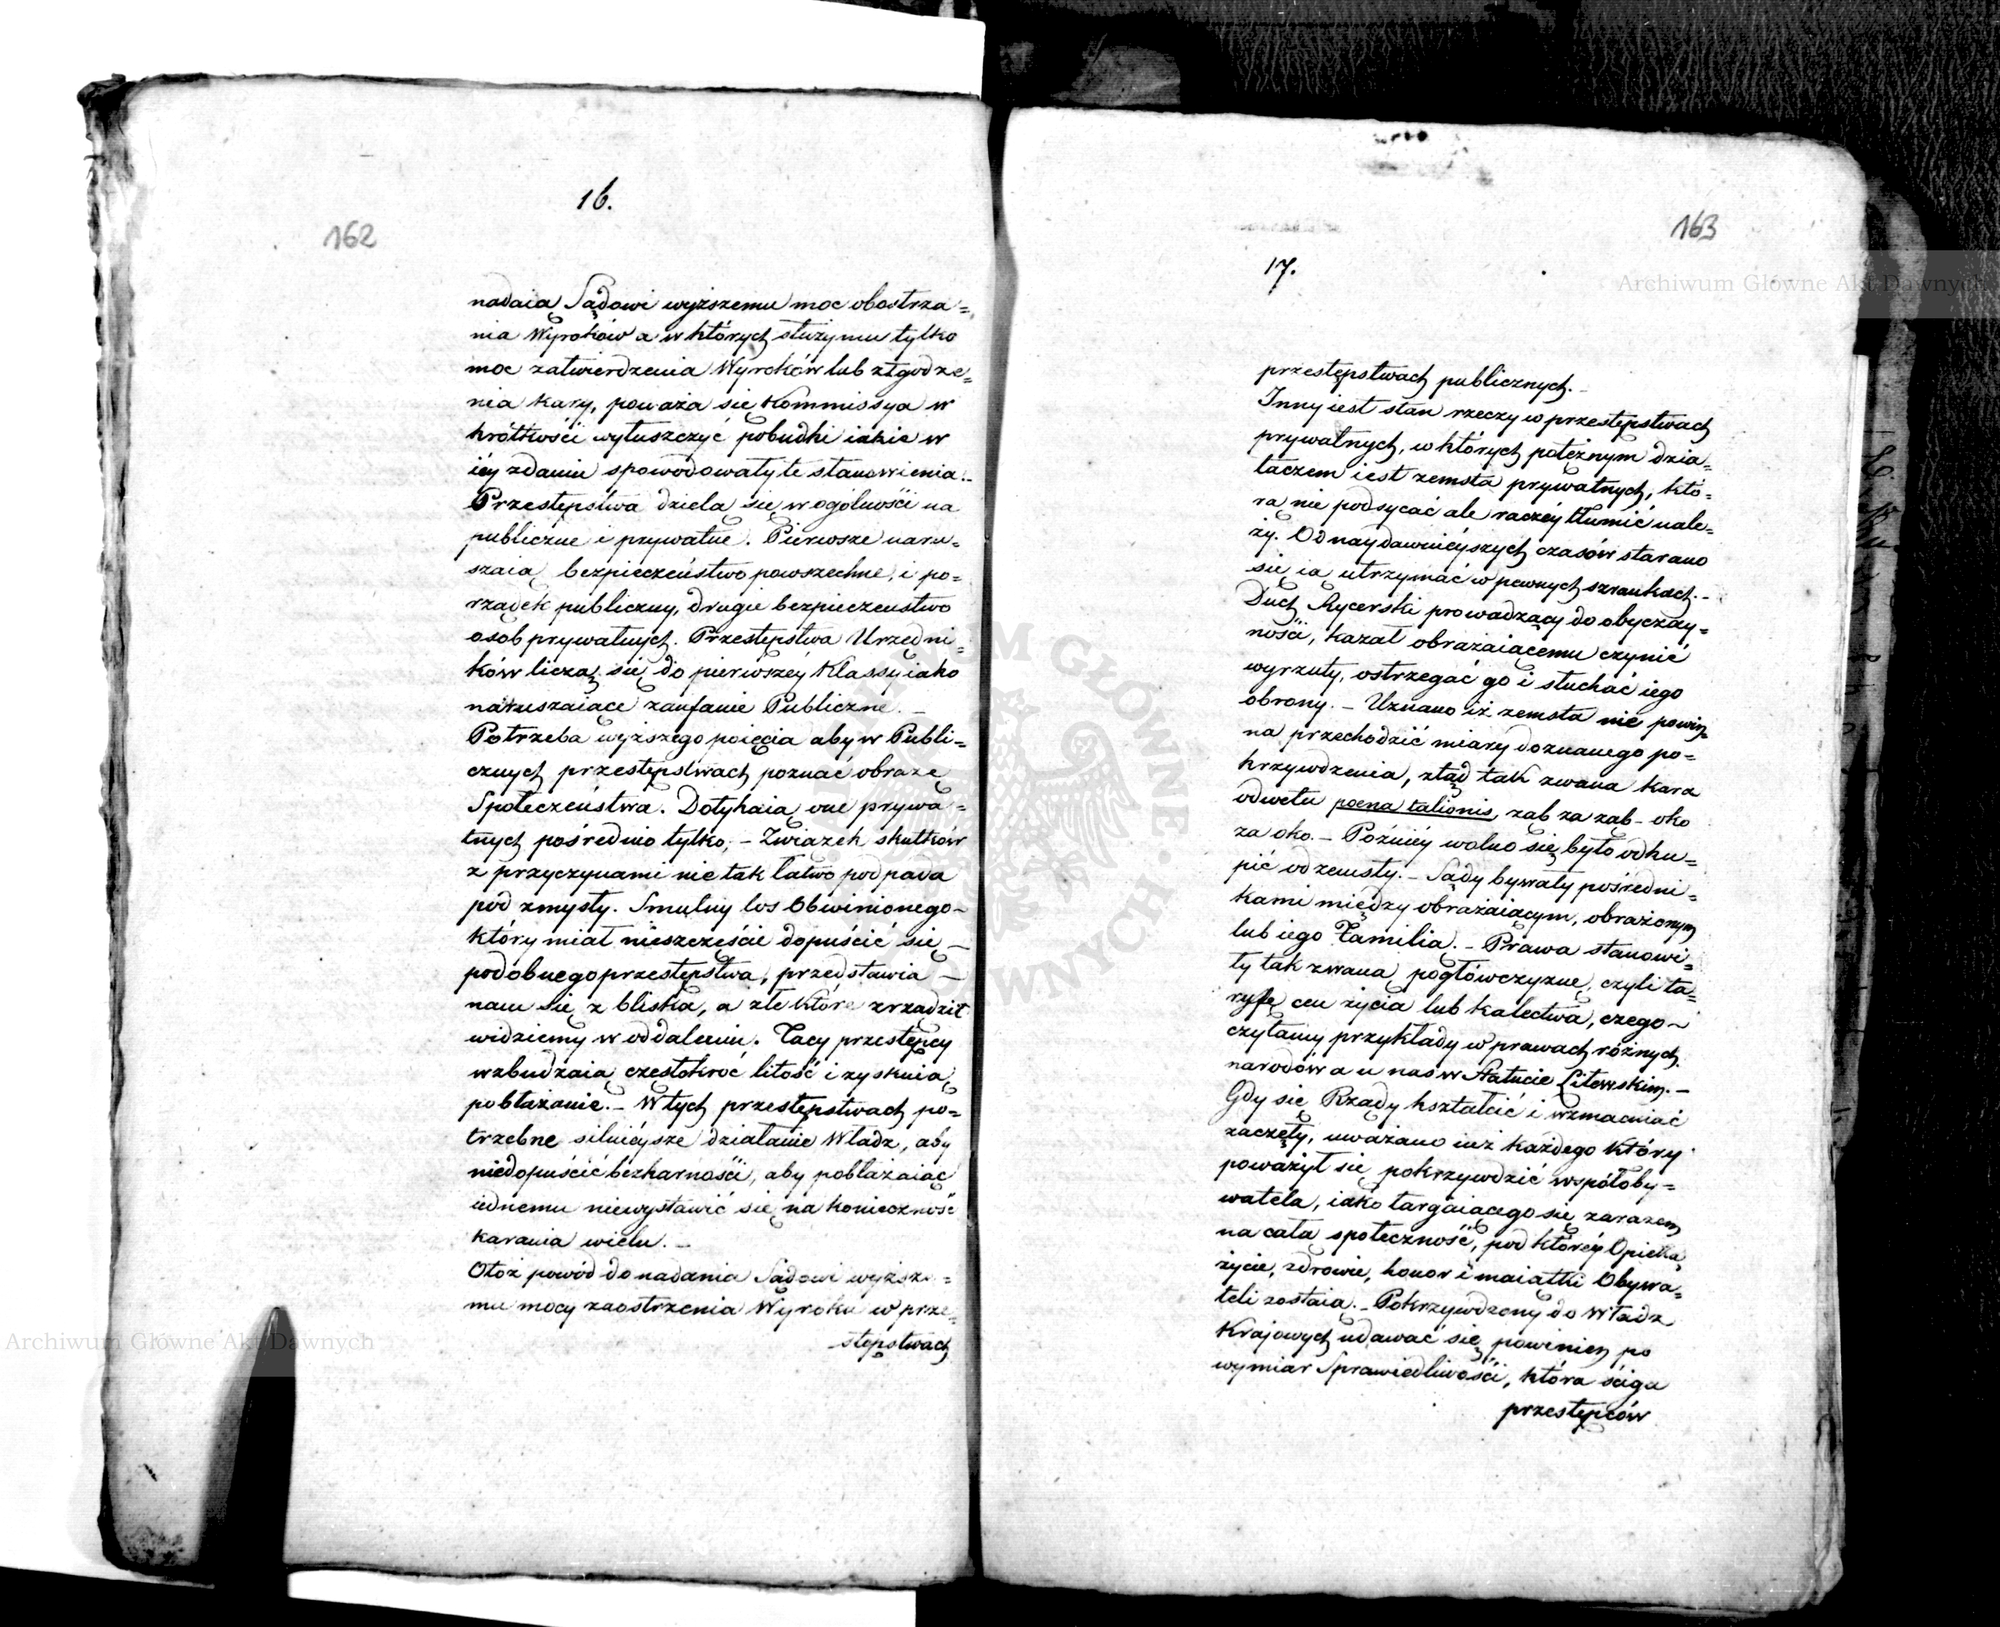 16.
162
nadaią Sądowi wyższemu moc obostrza=
nia Wyroków a w których służy mu tylko
moc zatwierdzenia Wyroków lub złgodze=
nia kary, poważa się Kommissya w
krótkości wyłuszczyć pobudki iakie w
iéy zdaniu spowodowały te stanowienia.-
Przestępstwa dzielą się w ogólności na
publiczne i prywatne. Pierwsze naru=
szaią bezpieczeństwo powszechne, i po=
rządek publiczny, drugie bezpieczenstwo
osób prywatnych. Przestępstwa Urzędni=
ków liczą się do pierwszéy Klassy iako
naruszaiące zaufanie Publiczne. -
Potrzeba wyższego poięcia aby w Publi=
cznych przestępstwach poznać obrazę
Społeczeństwa. Dotykaią one prywa=
tnych pośrednio tylko, - Związek skutków
z przyczynami nie tak łatwo podpada
pod zmysły. Smutny los Obwinionego -
który miał nieszczęście dopuścić się -
podobnego przestępstwa, przedstawia -
nam się z bliska, a złe które zrządził
widziemy w oddaleniu. Tacy przestępcy
wzbudzaią częstokroć litość i zyskuią
pobłażanie. - W tych przestępstwach po=
trzebne silniéysze działanie Władz, aby
niedopuścić bezkarności, aby pobłażaiąc
iednemu niewystawić się na konieczność
karania wielu. -
Otóż powód do nadania Sądowi wyższe=
mu mocy zaostrzenia Wyroku w prze=
stępstwach
163
17.
przestępstwach publicznych. -
Inny iest stan rzeczy w przestępstwach
prywatnych, w których potężnym dzia=
łaczem iest zemsta prywatnych, któ=
rą nie podsycać ale raczéy tłumić nale=
ży. Od naydawniéyszych czasów starano
się ią utrzymać w pewnych szrankach. -
Duch Rycerski prowadzący do obyczay=
ności, kazał obrażaiącemu czynić
wyrzuty, ostrzegać go i słuchać iego
obrony. - Uznano iż zemsta nie powin=
na przechodzić miary doznanego po=
krzywdzenia, ztąd tak zwana kara
odwetu poena talionis, ząb za ząb - oko
za oko. - Poźniéy wolno się było odku=
pić od zemsty. - Sądy bywały pośredni=
kami między obrażaiącym, obrażonym
lub iego Familią. - Prawa stanowi=
ły tak zwaną pogłówczyznę, czyli ta=
ryfę cen życia lub kalectwa, czego -
czytamy przykłady w prawach różnych
narodów a u nas w Statucie Litewskim. -
Gdy się Rządy kształcić i wzmacniać
zaczęły, uważano iuż każdego który
poważył się pokrzywdzić współoby=
watela, iako targaiącego się zarazem
na całą społeczność, pod któréy Opieką
życie, zdrowie, honor i maiątki Obywa=
teli zostaią. - Pokrzywdzony do Władz
Krajowych udawać się powinien po
wymiar Sprawiedliwości, która ściga
przestępców